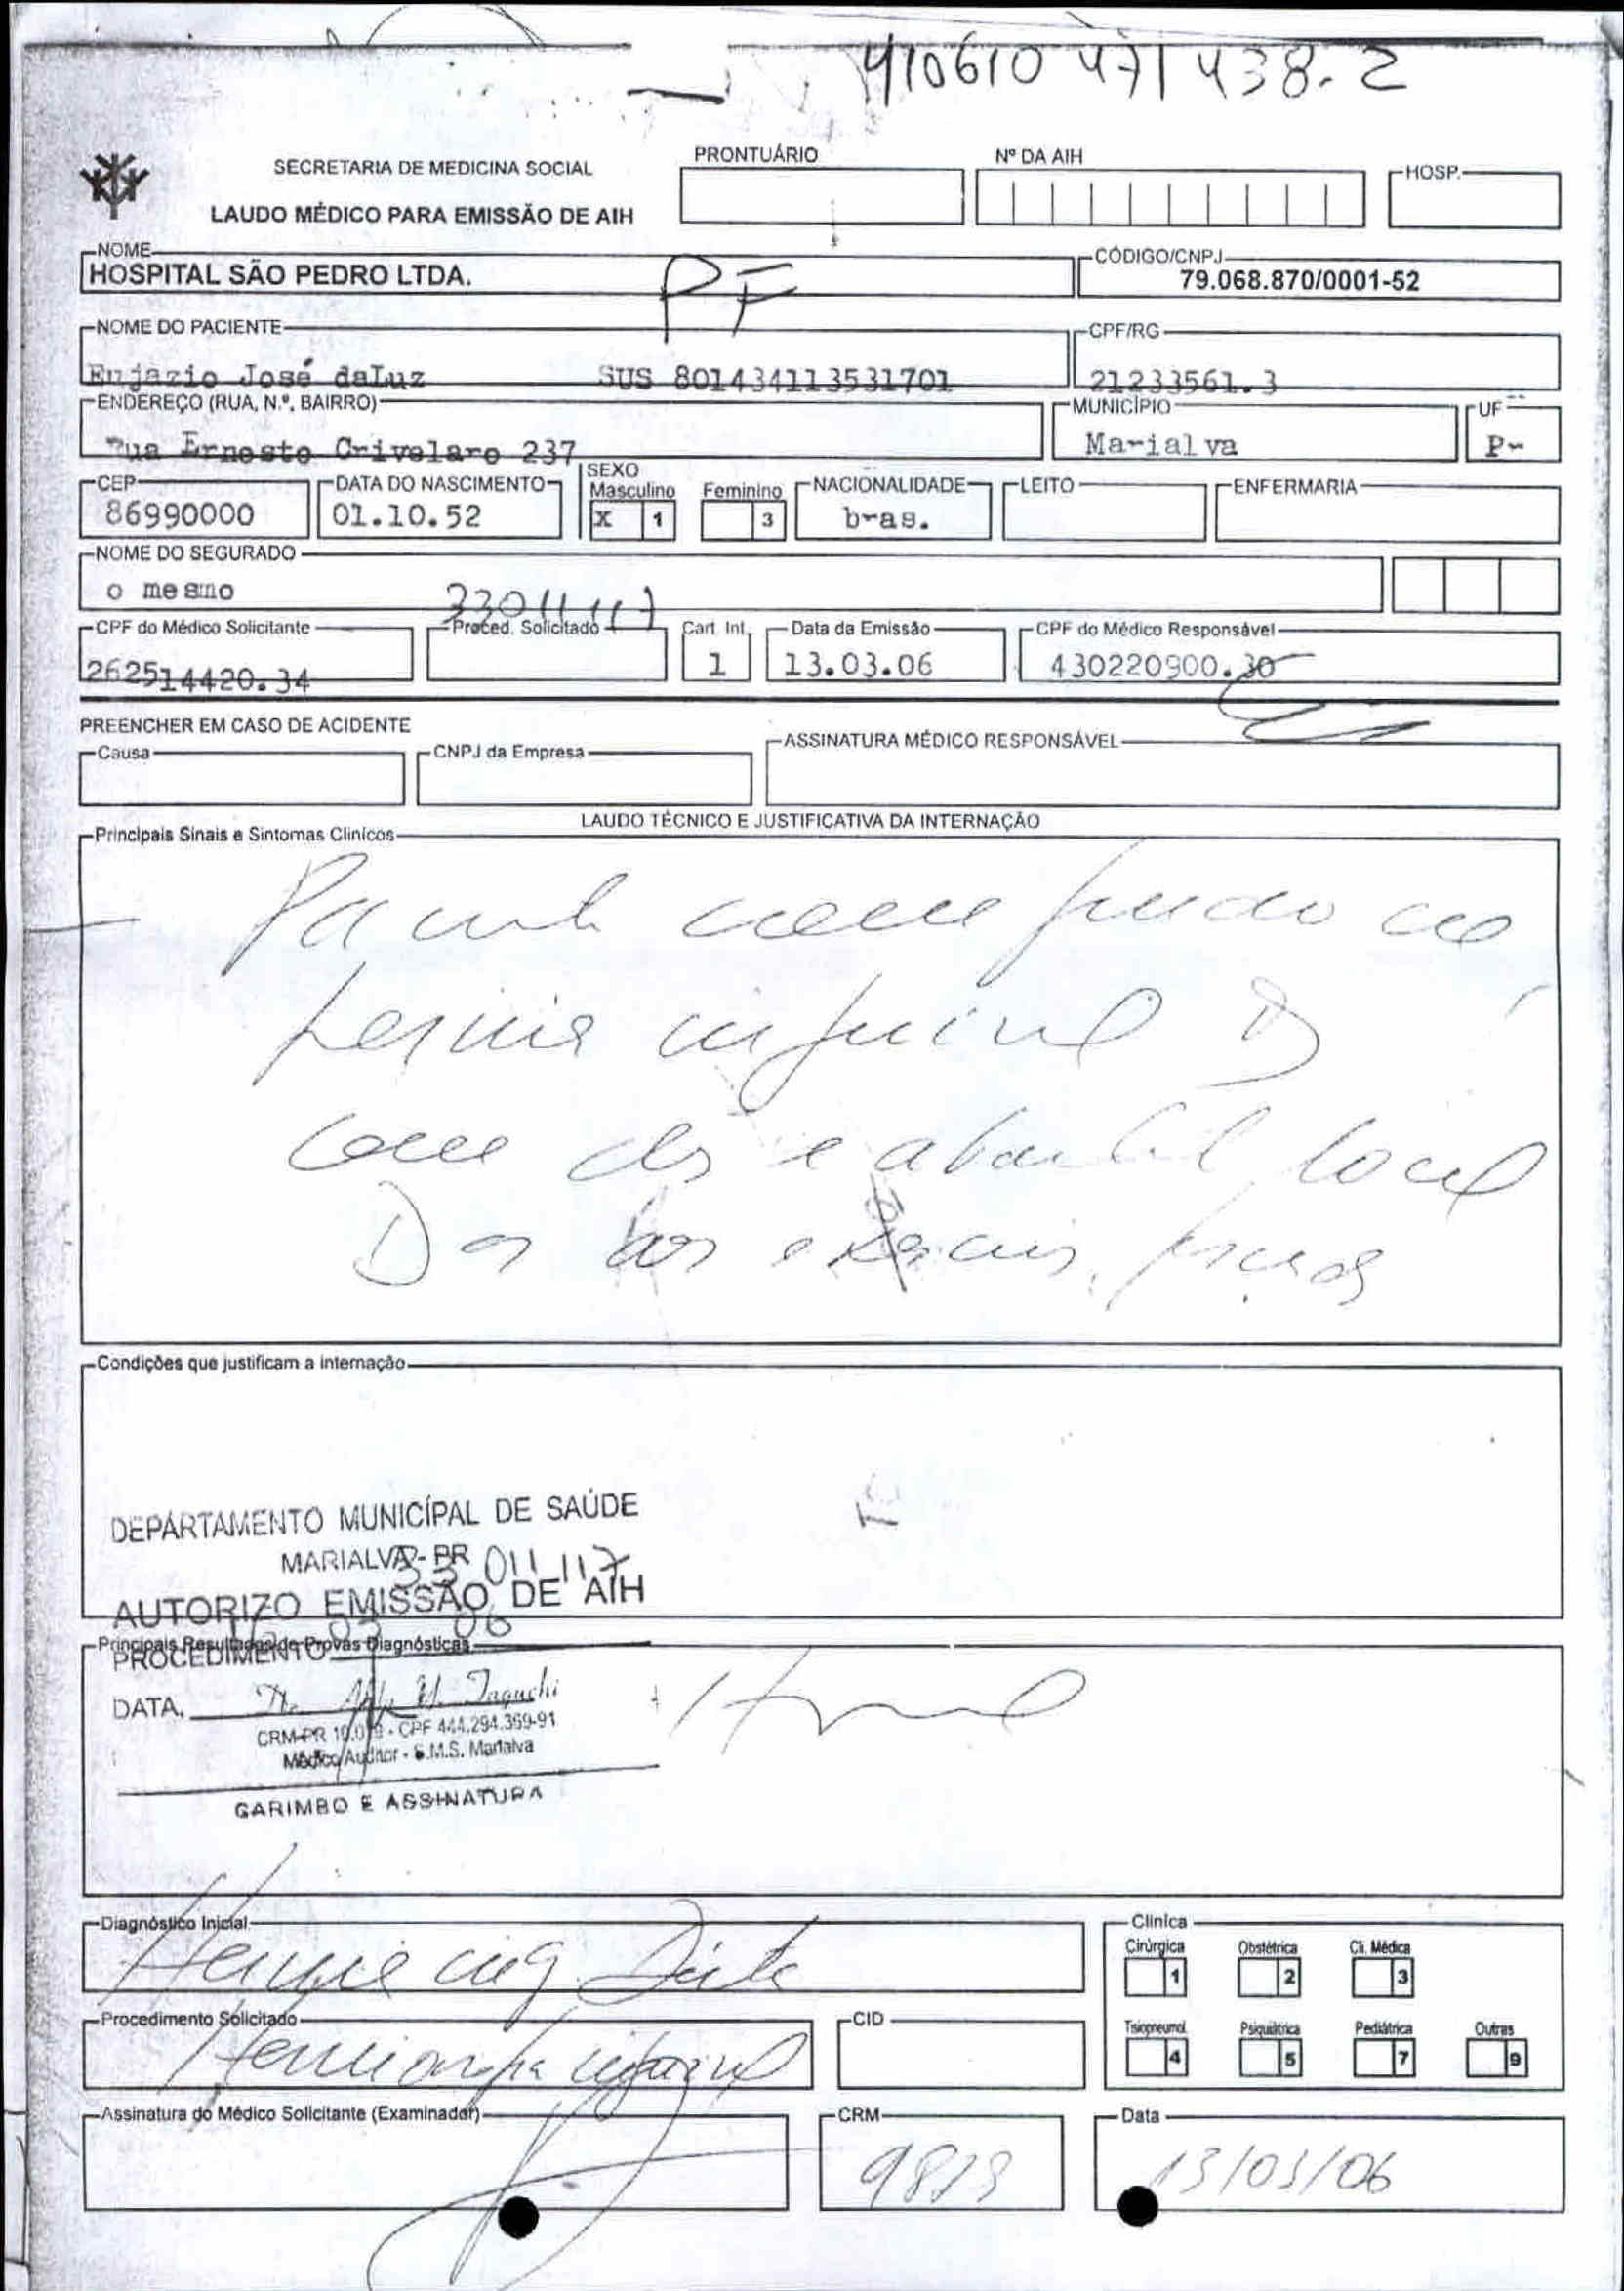 410610471438-2
SECRETARIA DE MEDICINA SOCIAL
LAUDO MÉDICO PARA EMISSÃO DE AIH
PRONTUÁRIO
Nº DA AIH
HOSP.
NOME
HOSPITAL SÃO PEDRO LTDA.
PF
CÓDIGO/CNPJ
79.068.870/0001-52
NOME DO PACIENTE
Enjazio José daLuz SUS 801434113531701
CPF/RG
21233561.3
ENDEREÇO (RUA, N.º, BAIRRO)
Rua Ernesto Crivelaro 237
MUNICÍPIO
Marialva
UF
Pr
CEP
86990000
DATA DO NASCIMENTO
01.10.52
SEXO
Masculino
X 1
Feminino
3
NACIONALIDADE
bras.
LEITO
ENFERMARIA
NOME DO SEGURADO
o mesmo
CPF do Médico Solicitante
262514420.34
33011117
Proced. Solicitado
Cart. Int.
1
Data da Emissão
13.03.06
CPF do Médico Responsável
430220900.30
PREENCHER EM CASO DE ACIDENTE
Causa
CNPJ da Empresa
ASSINATURA MÉDICO RESPONSÁVEL
LAUDO TÉCNICO E JUSTIFICATIVA DA INTERNAÇÃO
Principais Sinais e Sintomas Clínicos
hernia inguinal D
com dor e local
Condições que justificam a internação
DEPARTAMENTO MUNICÍPAL DE SAÚDE
MARIALVA-PR
33 011 117
AUTORIZO EMISSÃO DE AIH
Principais Resultados de Provas Diagnósticas
PROCEDIMENTO
DATA
Taguchi
CPF 444.294.369-91
Médico Auditor - S.M.S. Marialva
CARIMBO E ASSINATURA
Diagnóstico Inicial
Hernia ing. Direita
Procedimento Solicitado
Herniorrafia inguinal
CID
Clínica
Cirúrgica
1
Obstétrica
2
Cli. Médica
3
Tisiopneumol.
4
Psiquiátrica
5
Pediátrica
7
Outras
9
Assinatura do Médico Solicitante (Examinador)
CRM
Data
13/03/06